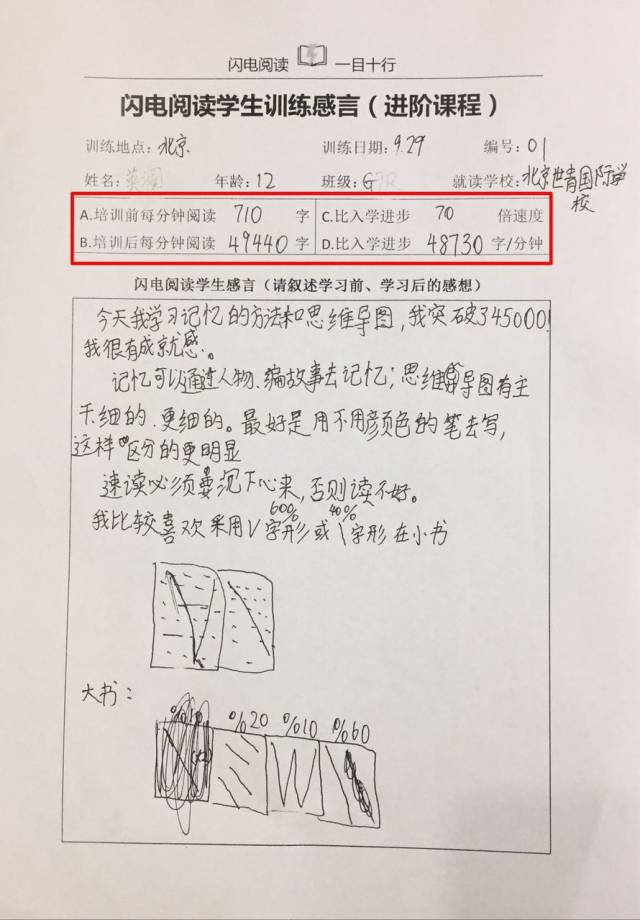 闪电阅读 一目十行
闪电阅读学生训练感言（进阶课程）
训练地点：北京 训练日期：9.29 编号：01
姓名： 年龄：12 班级：G7R 就读学校：北京世青国际学校
A.培训前每分钟阅读 710 字 C.比入学进步 70 倍速度
B.培训后每分钟阅读 49440 字 D.比入学进步 48730 字/分钟
闪电阅读学生感言（请叙述学习前、学习后的感想）
今天我学习记忆的方法和思维导图，我突破了45000！
我很有成就感。
记忆可以通过人物、编故事去记忆；思维导图有主
干、细的、更细的。最好是用不用颜色的笔去写，
这样区分的更明显
速读必须要沉下心来，否则读不好。
60% 40%
我比较喜欢采用V字形或\字形在小书
大书：
%20 %10 %60